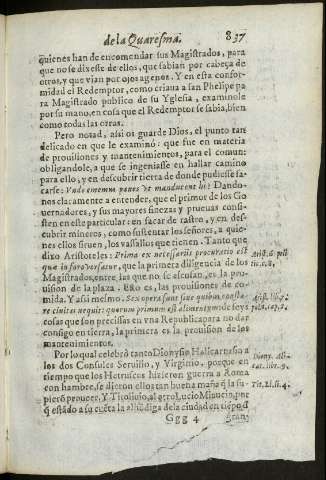 de la Quaresma. 837
quienes han de encomendar sus Magistrados, para
que no se dixesse de ellos, que sabian por cabeça de
otros, y que vian por ojos agenos. Y en esta confor-
midad el Redemptor, como criaua a san Phelipe pa
ra Magistrado publico de su Yglesia, examinole
por su mano, en cosa que el Redemptor se sabia, bien
como todas las otras.
Pero notad, assi os guarde Dios, el punto tan
delicado en que le examinò: que fue en materia
de prouisiones y mantenimientos, para el comun:
obligandole, a que se ingeniasse en hallar camino
para ello, y en descubrir tierra de donde pudiesse sa-
carse: Unde ememus panes ut manducent hi: Dando-
nos claramente a entender, que el primor de los Go
uernadores, y sus mayores finezas y prueuas consi-
sten en este particular: en sacar de rastro, y en des-
cubrir mineros, como sustentar los señores, a quie-
nes ellos siruen, los vassallos que tienen. Tanto que
dixo Aristoteles: Prima ex necessariis procuratio est
que in foro versatur, que la primera diligencia de los
Magistrados, entre las que no se escusan, es la pro-
uision de la plaza. Esto es, las prouisiones de co-
mida. Y asi mesmo. Sex opera sunt sine quibus consta-
re ciuitas nequit: quorum primum est alimentum: de seys
cosas que son precissas en vna Republica para no dar
consigo en tierra, la primera es la prouision de los
mantenimientos.
Por lo qual celebrò tanto Dionysio Halicarnasio a
los dos Consules Seruilio, y Virginio, porque en
tiempo que los Hetruscos hizieron guerra a Roma
con hambre, se dieron ellos tan buena maña q̃ la su-
pierõ proueer. Y Tito liuio, al otro Lucio Minucio, por
q̃ estãdo a su cuẽta la alhõdiga de la ciudad en tiẽpo d̃
Ggg 4 gran
Arist. 6. poli
tic. c. 8.
Arist. lib. 7.
polit. c. 8.
Dionys. Ali-
car. lib. 9.
Tit. Li. li. 4.